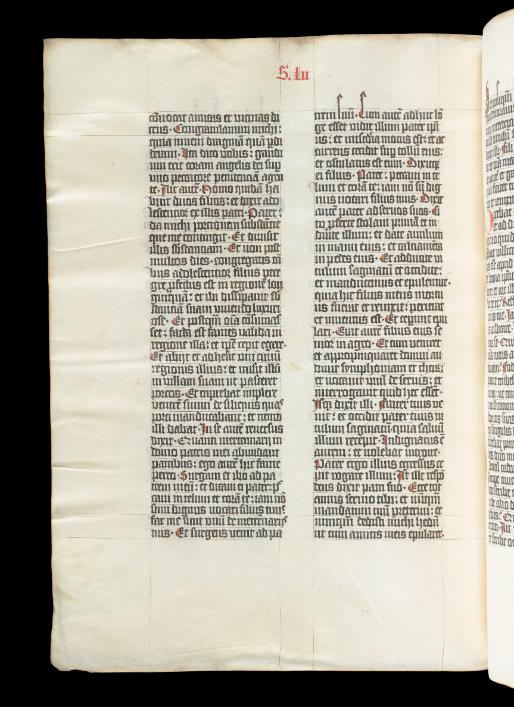 S. Lu
cōuocat amicas et vicinas di
cens· Congratulamini michi:
quia inueni dragmā quā ꝑdi
deram· Ita dico vobis: gaudi
um erit coram angelis dei sup
vno peccatore penitenciā agen
te· Ait autē· Homo quidā ha
buit duos filios: et dixit ado
lescentior ex illis patri· Pater:
da michi portionem substātie
que me contingit· Et diuisit
illis substantiam· Et non post
multos dies· congregatis oī
bus adolescentior filius pere
gre ꝓfectus est in regionē lon
ginquā: et ibi dissipauit sb
stantiā suam viuendo luxuri
ose· Et postqᷓ oīa cōsūmas
set: facta est fames valida in
regione illa: et ip̄e cepit egere·
Et abijt et adhesit vni ciuiū
regionis illius: et misit illū
in villam suam ut pasceret
porcos· Et cupiebat implere
ventrē suum de siliquis quas
porci manducabant: et nemo
illi dabat· In se autē reuersus
dixit· Quanti mercennarij in
domo patris mei abundant
panibus: ego autē hic fame
pereo· Surgam et ibo ad pa
trem meū: et dicam ei· pater: p̄c
caui in celum et corā te: iam nō
sum dignus vocari filius tuus·
fac me sicut vnū de mercenarijs
tuis· Et surgens venit ad pa
trem suū· Cum autē adhuc lō
ge esset vidit illum pater ip̄i
us: et misericordia motus est: et ac
currens cecidit sup collū eius:
et osculatus est eum· Dixitqꝫ
ei filius· Pater: peccaui in ce
lum et corā te: iam nō sū dig
nus vocari filius tuus· Dixit
autē pater ad seruos suos· Ci
to ꝓferte stolam primā et in
duite illum: et date anulum
in manu eius: et calciamēta
in pedes eius· Et adducite vi
tulum saginatū et occidite:
et manducemus et epulemur·
quia hic filius meus mortu
us fuerat et reuixit: perierat
et inuentus est· Et ceperunt epu
lari· Erat autē filius eius se
nior in agro· Et cum veniret
et appropinquaret domui au
diuit symphoniam et chorū:
et vocauit vnū de seruis: et
interrogauit quid hec essent·
Isqꝫ dixit illi· Frater tuus ve
nit: et occidit pater tuus vi
tulum saginatū· quia saluū
illum recepit· Indignatus ē
autem: et nolebat introire·
Pater ergo illius egressus ce
pit rogare illum· At ille respō
dens dixit patri suo· Ecce tot
annis seruio tibi: et nunqᷓ
mandatum tuū preterii: et
nunqᷓ dedisti michi hedū
ut cum amicis meis epularer·